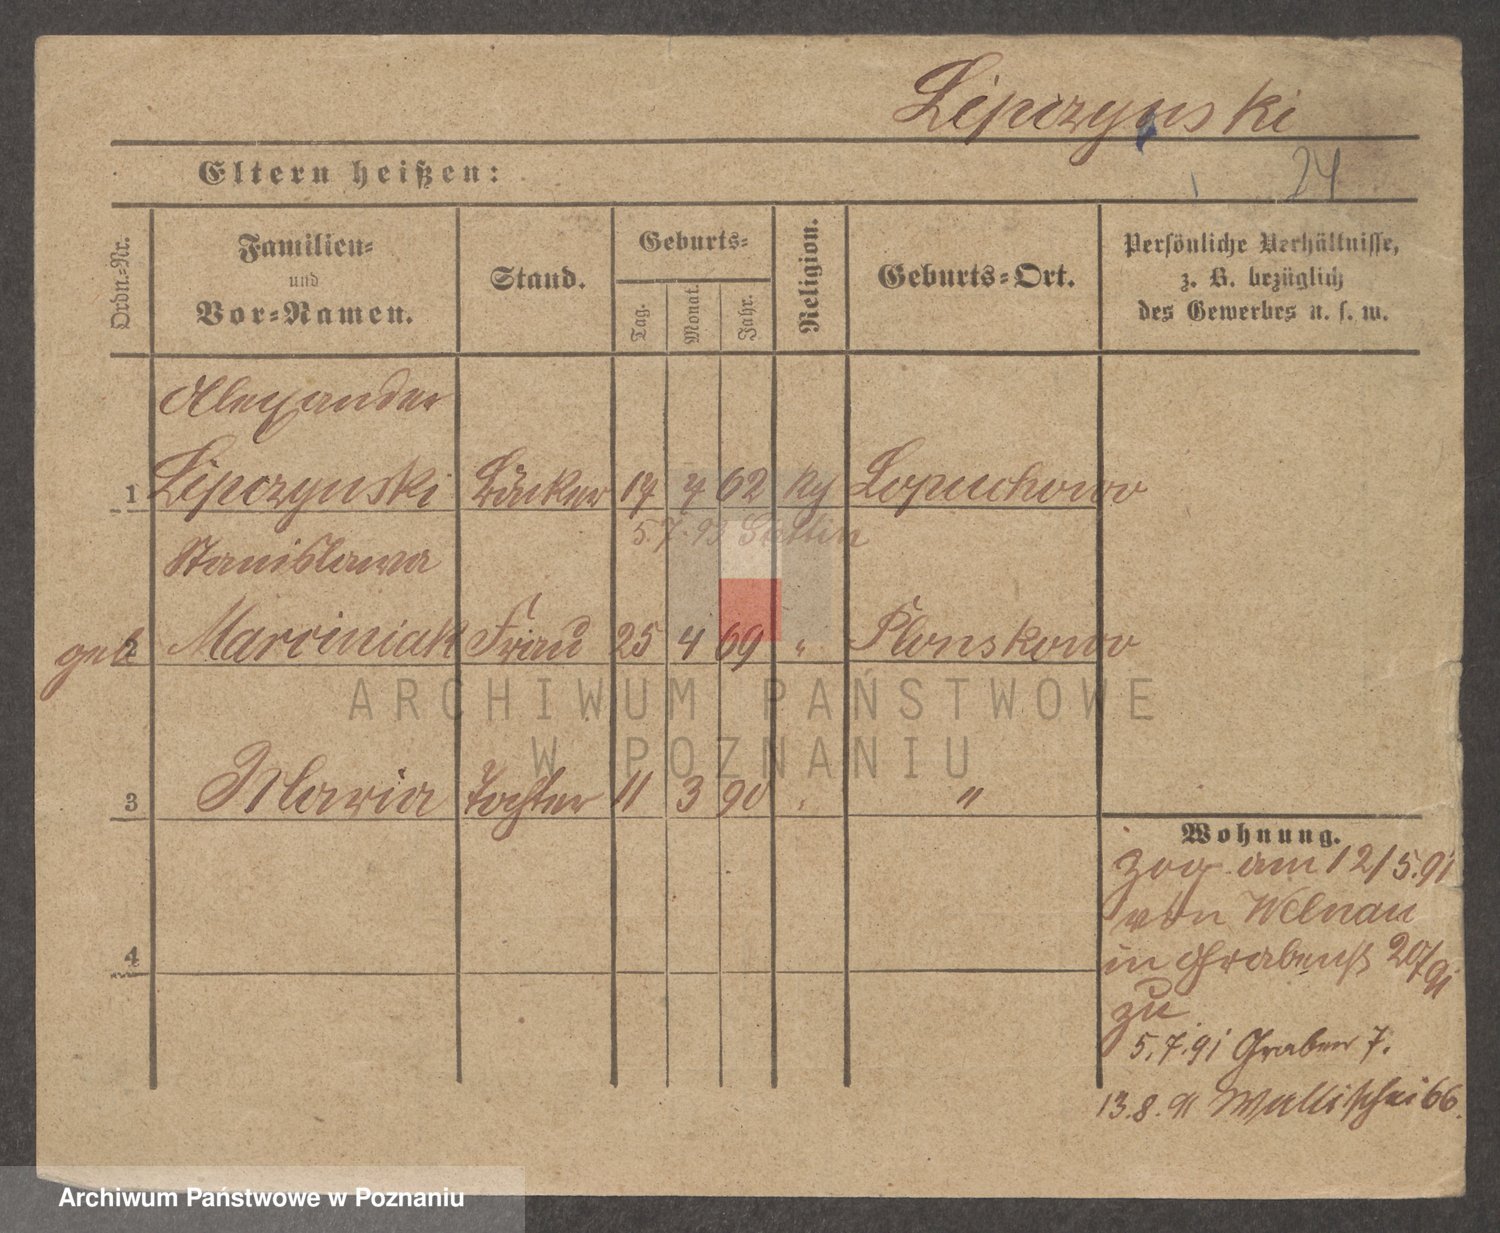 Lipczynski
Eltern heißen:
24
Ordn.-Nr.
Familien-
und
Vor-Namen.
Stand.
Geburts-
Tag.
Monat.
Jahr.
Religion.
Geburts-Ort.
Persönliche Verhältnisse,
z. B. bezüglich
des Gewerbes u. s. w.
Alexander
1 Lipczynski Bäcker 17 7 62 Lopuchowo
5.7.93 Stettin
Stanislawa
geb 2 Marciniak Frau 25 4 69 " Plonskowo
ARCHIWUM PAŃSTWOWE
W POZNANIU
3 Maria Tochter 11 3 90 " "
Wohnung.
zog am 12/5.91
von Welnau
in Grabenst 20/91
zu
4
5.7.91 Graben 7.
13.8.91 Wallischei 66.
Archiwum Państwowe w Poznaniu